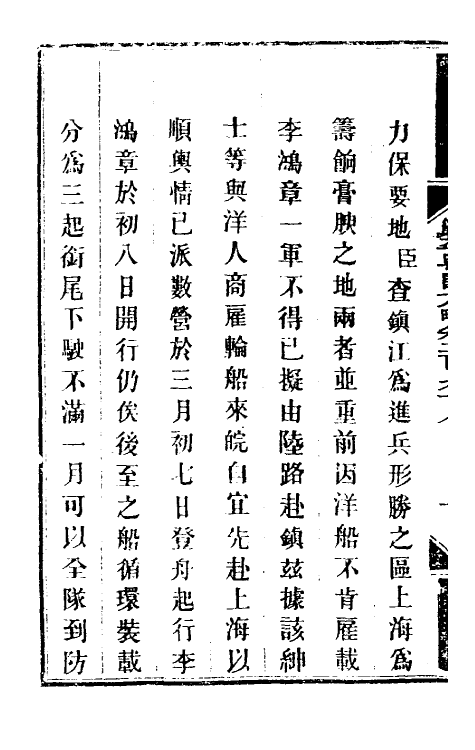 力保要地臣查鎮江爲進兵形勝之區上海爲
籌餉膏腴之地兩者並重前因洋船不肯雇載
李鴻章一軍不得已擬由陸路赴鎮茲據該紳
士等與洋人商雇輪船來皖自宜先赴上海以
順輿情已派數營於三月初七日登舟起行李
鴻章於初八日開行仍俟後至之船循環裝載
分爲三起銜尾下駛不滿一月可以全隊到防